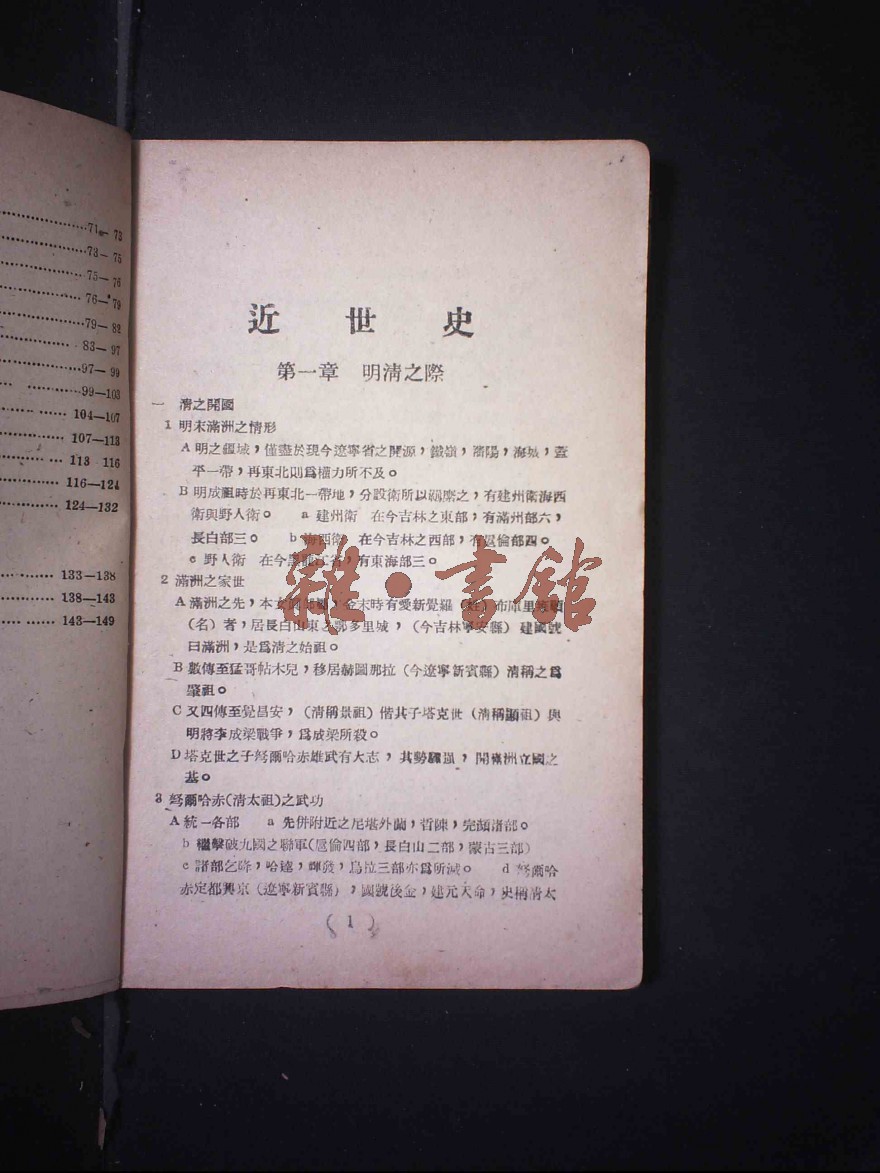 71— 73
73— 75
75— 76
76—79
79— 82
83—97
97—99
99—103
104—107
107—113
113 116
116—124
124—132
133—138
138—143
143—149
近世史
第一章 明清之際
一 清之開國
1 明末滿洲之情形
A 明之疆域，僅盡於現今遼寧省之開源，鐵嶺，瀋陽，海城，蓋
平一帶，再東北則爲權力所不及。
B 明成祖時於再東北一帶地，分設衛所以羈縻之，有建州衛海西
衛與野人衛。 a 建州衛 在今吉林之東部，有滿州部六，
長白部三。 b 海西衛 在今吉林之西部，有扈倫部四。
c 野人衛 在今黑龍江省，有東海部三。
2 滿洲之家世
A 滿洲之先，本女眞，金末時有愛新覺羅（姓）布庫里雍順
（名）者，居長白山東之鄂多里城，（今吉林寧安縣）建國號
曰滿洲，是爲清之始祖。
B 數傳至猛哥帖木兒，移居赫圖那拉（今遼寧新賓縣）清稱之爲
肇祖。
C 又四傳至覺昌安，（清稱景祖）偕其子塔克世（清稱顯祖）與
明將李成梁戰爭，爲成梁所殺。
D 塔克世之子努爾哈赤雄武有大志，其勢驟强，開滿洲立國之
基。
3 努爾哈赤(清太祖)之武功
A 統一各部 a 先併附近之尼堪外蘭，哲陳，完顏諸部。
b 繼擊破九國之聯軍(扈倫四部，長白山二部，蒙古三部)
c 諸部乞降，哈達，輝發，烏拉三部亦爲所滅。 d 努爾哈
赤定都興京（遼寧新賓縣），國號後金，建元天命，史稱清太
( 1 )
雜·書館